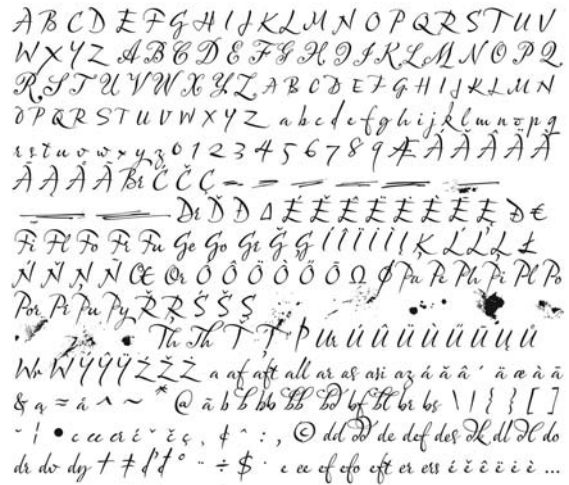 A B C D E F G H I J K L M N O P Q R S T U V
W X Y Z A B C D E F G H I J K L M N O P Q
R S T U V W X Y Z A B C D E F G H I J K L M N
O P Q R S T U V W X Y Z a b c d e f g h i j k l m n o p q
r s t u v w x y z 0 1 2 3 4 5 6 7 8 9 Æ Á Ă Â Ä Ā
À Ą Å Ã Br Ć Č Ç
Dr Ď Đ ∆ É Ě Ê Ë Ė È Ē Ę Ð €
Fi Fl Fo Fr Fu Ge Go Gr Ğ Í Î Ï İ Ì Ķ Ĺ Ľ Ļ Ł
Ń Ň Ņ Ñ Œ Or Ó Ô Ö Ò Ő Ō Ω Ø Pa Pe Ph Pi Pl Po
Por Pr Pu Py Ř Ŗ Ś Š Ş
Th Th Ť Ţ Þ Ur ú û ü ù ű ū ų ů
Wr W Ý Ŷ Ÿ Ź Ž Ż a af aft all ar as asi az á ă â ´ ä æ à ā
& ą ≈ å ^ ~ * @ ã b b bb bb bf br bs \ | { } [ ]
˘ ¦ • c cc cr ć ˇ č ç ¸ ¢ ˆ : , © dd de def des dl do
dr dv dy † ‡ ď đ ° ¨ ÷ $ ˙ e ee ef efo eft er ers é ě ê ë ė è ...